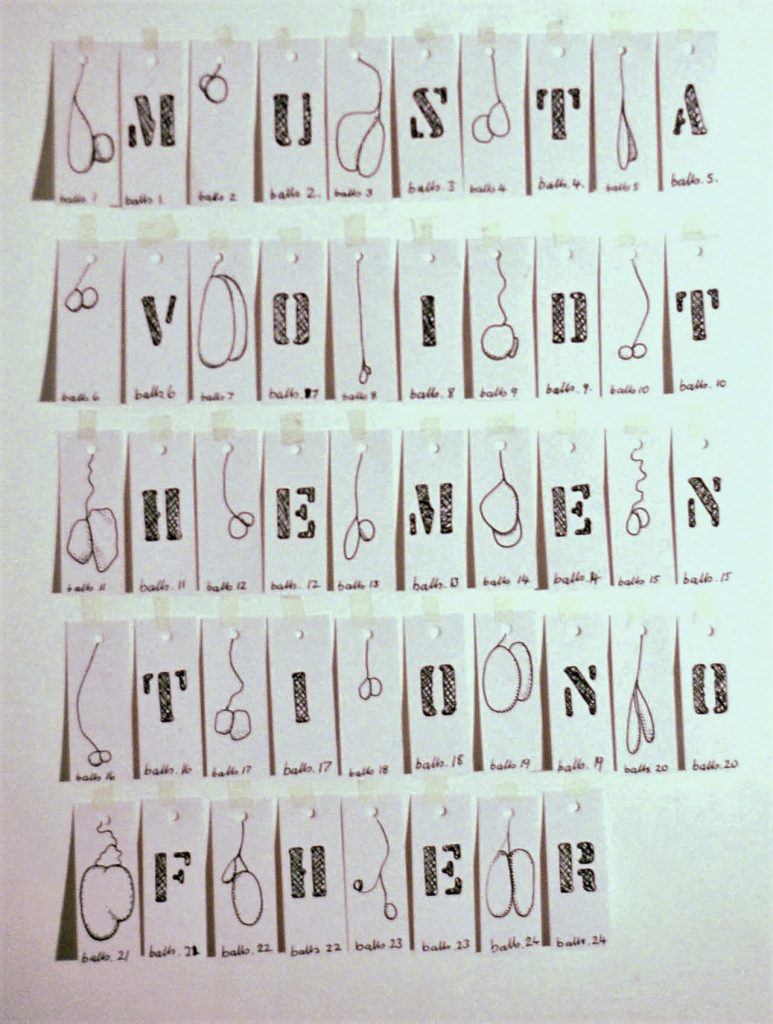 M U S T A
balls 1 balls 1. balls 2 balls 2. balls 3 balls 3 balls 4 balls 4. balls 5 balls 5.
V O I D T
balls 6 balls 6 balls 7 balls 7 balls 8 balls. 8 balls 9 balls. 9. balls 10 balls. 10
H E M E N
balls 11 balls. 11 balls 12 balls. 12 balls 13 balls. 13 balls 14 balls. 14 balls 15 balls. 15
T I O N O
balls 16 balls. 16 balls 17 balls. 17 balls 18 balls. 18 balls 19 balls. 19 balls. 20 balls. 20
F H E R
balls. 21 balls. 21 balls. 22 balls 22 balls. 23 balls. 23 balls. 24 balls. 24